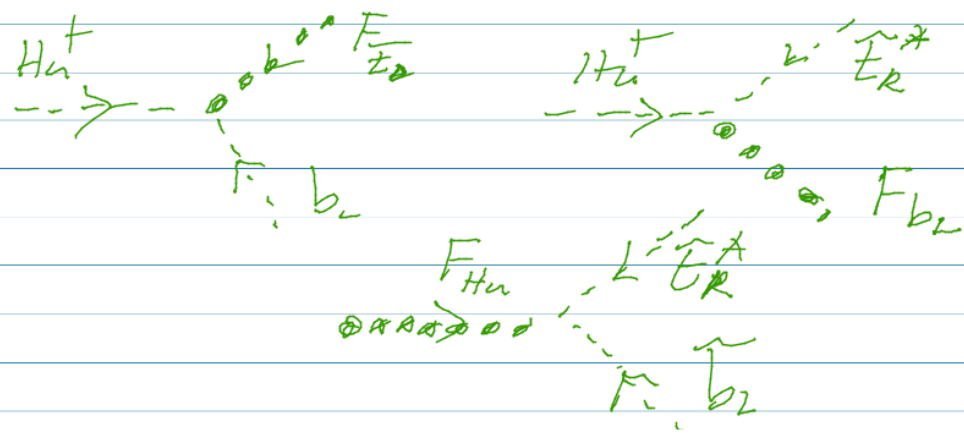 Hu+ F_t̄R Hu+ t̃R*
b_L F_bL
F_Hu t̃R*
b̃_L